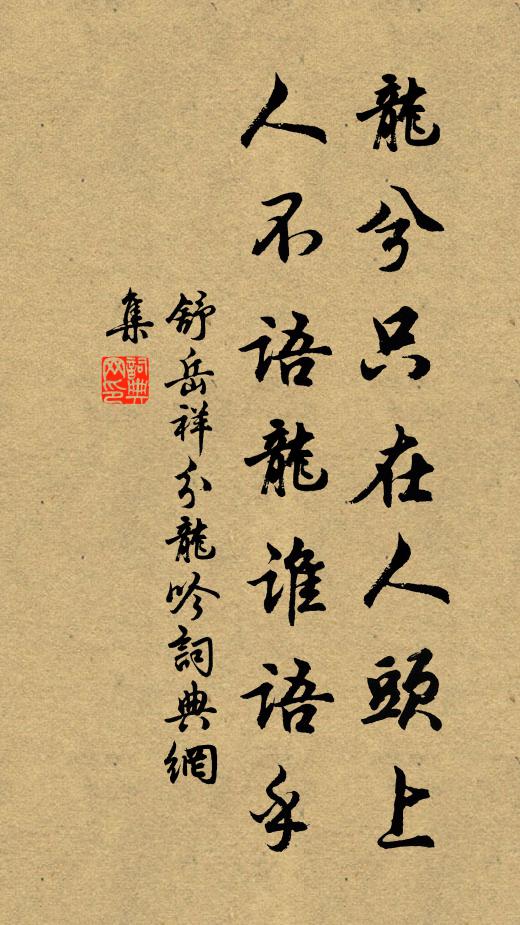 龍兮只在人頭上
人不語龍誰語乎
舒岳祥分龍吟詞典網
集
詞典
网印